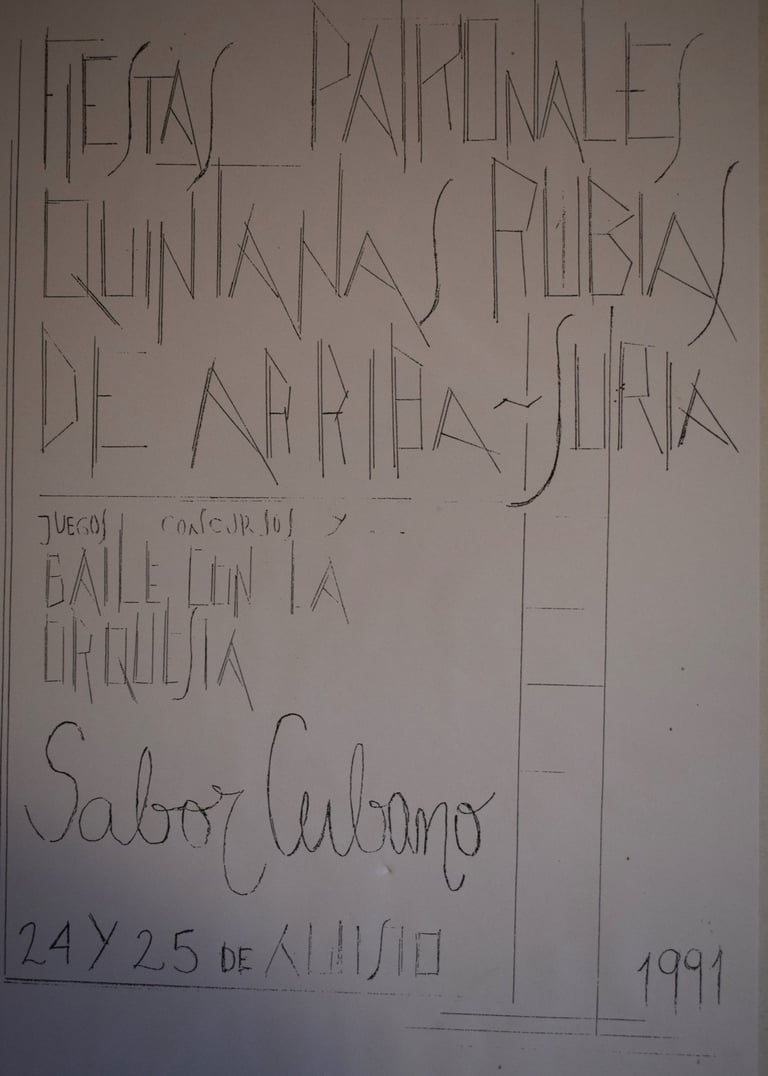 FIESTAS PATRONALES
QUINTANAS RUBIAS
DE ARRIBA ~ SORIA
JUEGOS CONCURSOS Y
BAILE CON LA
ORQUESTA
Sabor Cubano
24 Y 25 DE AGOSTO
1991